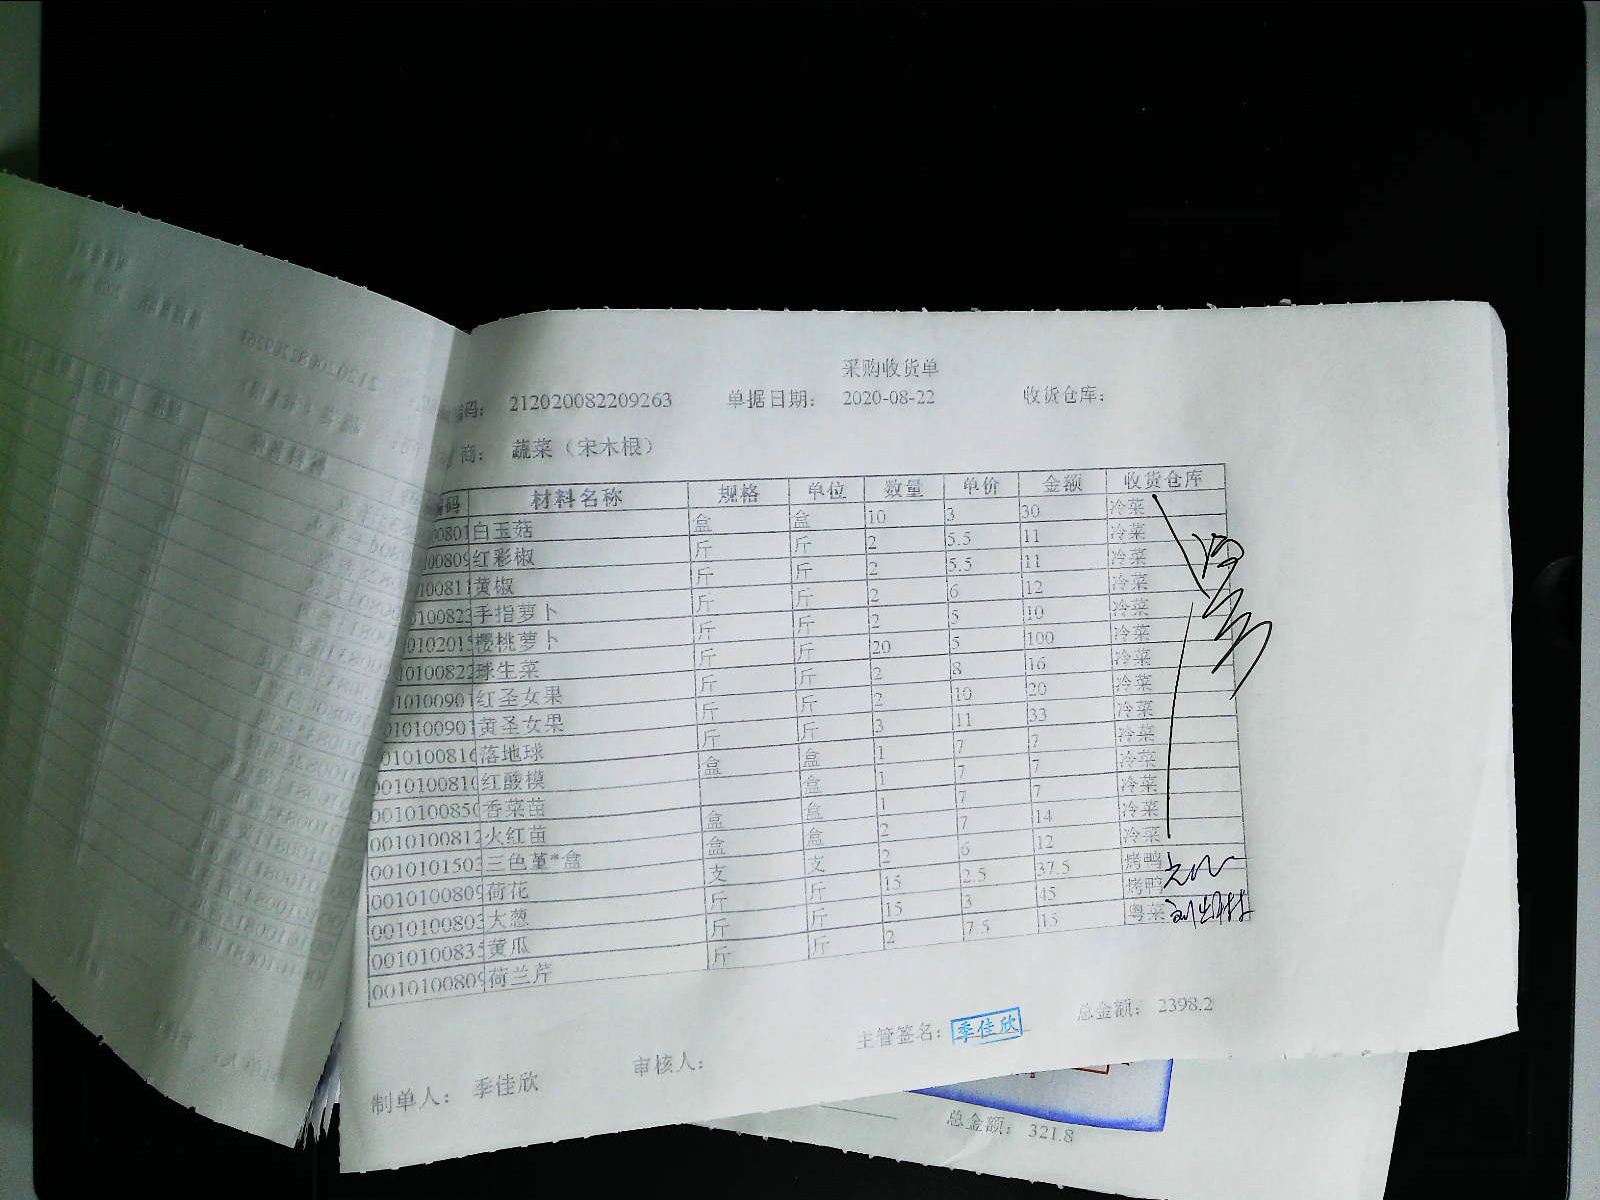 采购收货单
编码： 212020082209263 单据日期： 2020-08-22 收货仓库：
商： 蔬菜（宋木根）
编码 材料名称 规格 单位 数量 单价 金额 收货仓库
00801 白玉菇 盒 盒 10 3 30 冷菜
00809 红彩椒 斤 斤 2 5.5 11 冷菜
100811 黄椒 斤 斤 2 5.5 11 冷菜
0100823 手指萝卜 斤 斤 2 6 12 冷菜
0102015 樱桃萝卜 斤 斤 2 5 10 冷菜
10100822 球生菜 斤 斤 20 5 100 冷菜
10100901 红圣女果 斤 斤 2 8 16 冷菜
010100901 黄圣女果 斤 斤 2 10 20 冷菜
010100816 落地球 斤 斤 3 11 33 冷菜
0010100810 红酸模 盒 盒 1 7 7 冷菜
0010100850 香菜苗 盒 1 7 7 冷菜
0010100812 火红苗 盒 盒 1 7 7 冷菜
0010101503 三色堇*盒 盒 盒 2 7 14 冷菜
0010100809 荷花 支 支 2 6 12 冷菜
0010100803 大葱 斤 斤 15 2.5 37.5 烤鸭
0010100835 黄瓜 斤 斤 15 3 45 烤鸭
0010100809 荷兰芹 斤 斤 2 7.5 15 粤菜
主管签名： 季佳欣 总金额： 2398.2
制单人： 季佳欣 审核人：
总金额： 321.8